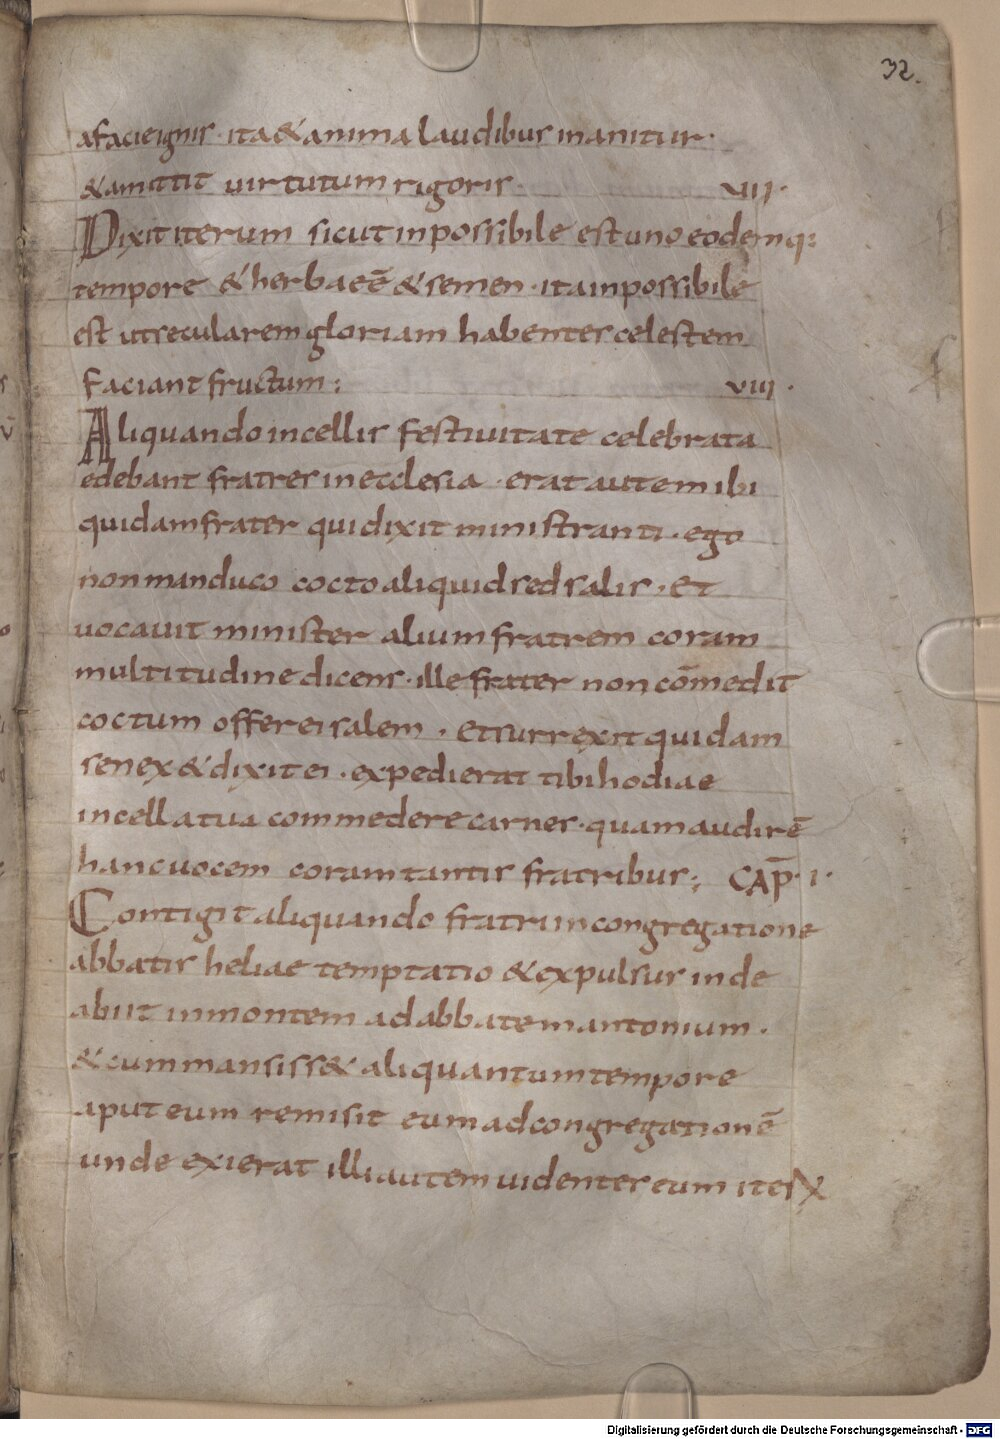 32.
afacieignis · ita&anima laudibus inanitur·
&amittit uirtutum rigoris · VII·
Dixit iterum sicut inpossibile est uno eodemq;
tempore & herba eē & semen · ita inpossibile
est ut secularem gloriam habentes celestem
faciant fructum: VIII·
Aliquando incellis festiuitate celebrata
edebant fratres in ecclesia · erat autem ibi
quidam frater qui dixit ministranti · ego
non manduco cocto aliquid sed salis · Et
uocauit minister alium fratrem coram
multitudine dicens · ille frater non cōmedit
coctum offer ei salem · Et surrexit quidam
senex & dixit ei · expedierat tibi hodiae
in cella tua commedere carnes · quam audirē
hanc uocem coram tantis fratribus; CAP̄· I·
Contigit aliquando fratri in congregatione
abbatis heliae temptatio & expulsus inde
abiit in montem ad abbatem antonium ·
& cum mansiss& aliquantum tempore
aput eum remisit eum ad congregationē
unde exierat illi autem uidentes eum iter
Digitalisierung gefördert durch die Deutsche Forschungsgemeinschaft - DFG